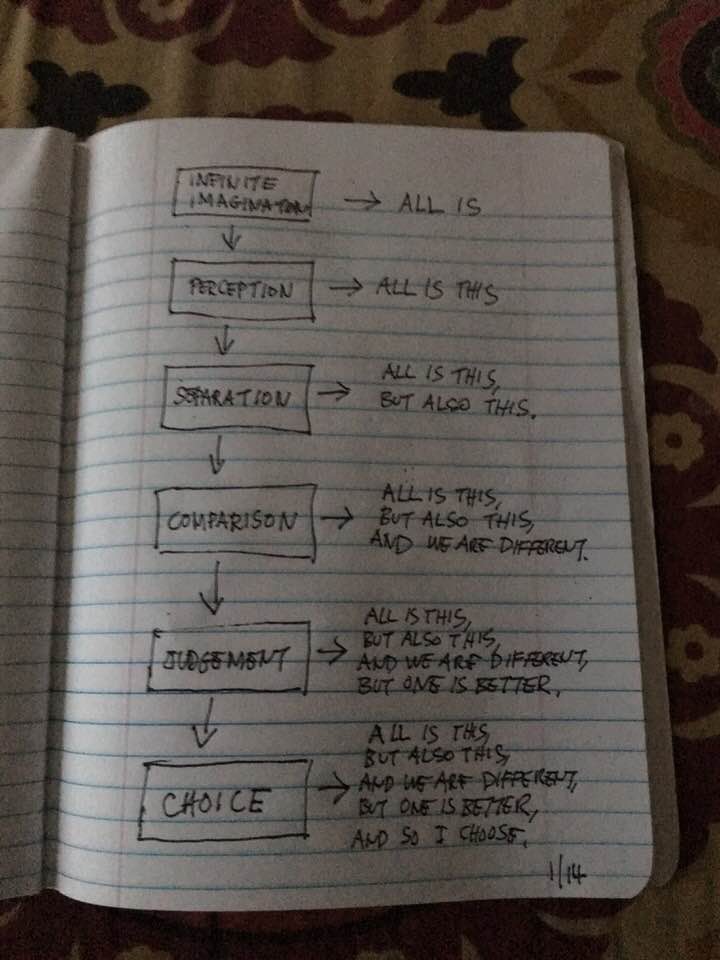 INFINITE
IMAGINATION → ALL IS
PERCEPTION → ALL IS THIS
SEPARATION → ALL IS THIS,
BUT ALSO THIS.
COMPARISON → ALL IS THIS,
BUT ALSO THIS,
AND WE ARE DIFFERENT.
JUDGEMENT → ALL IS THIS,
BUT ALSO THIS,
AND WE ARE DIFFERENT,
BUT ONE IS BETTER.
CHOICE → ALL IS THIS,
BUT ALSO THIS,
AND WE ARE DIFFERENT,
BUT ONE IS BETTER,
AND SO I CHOOSE.
1/14